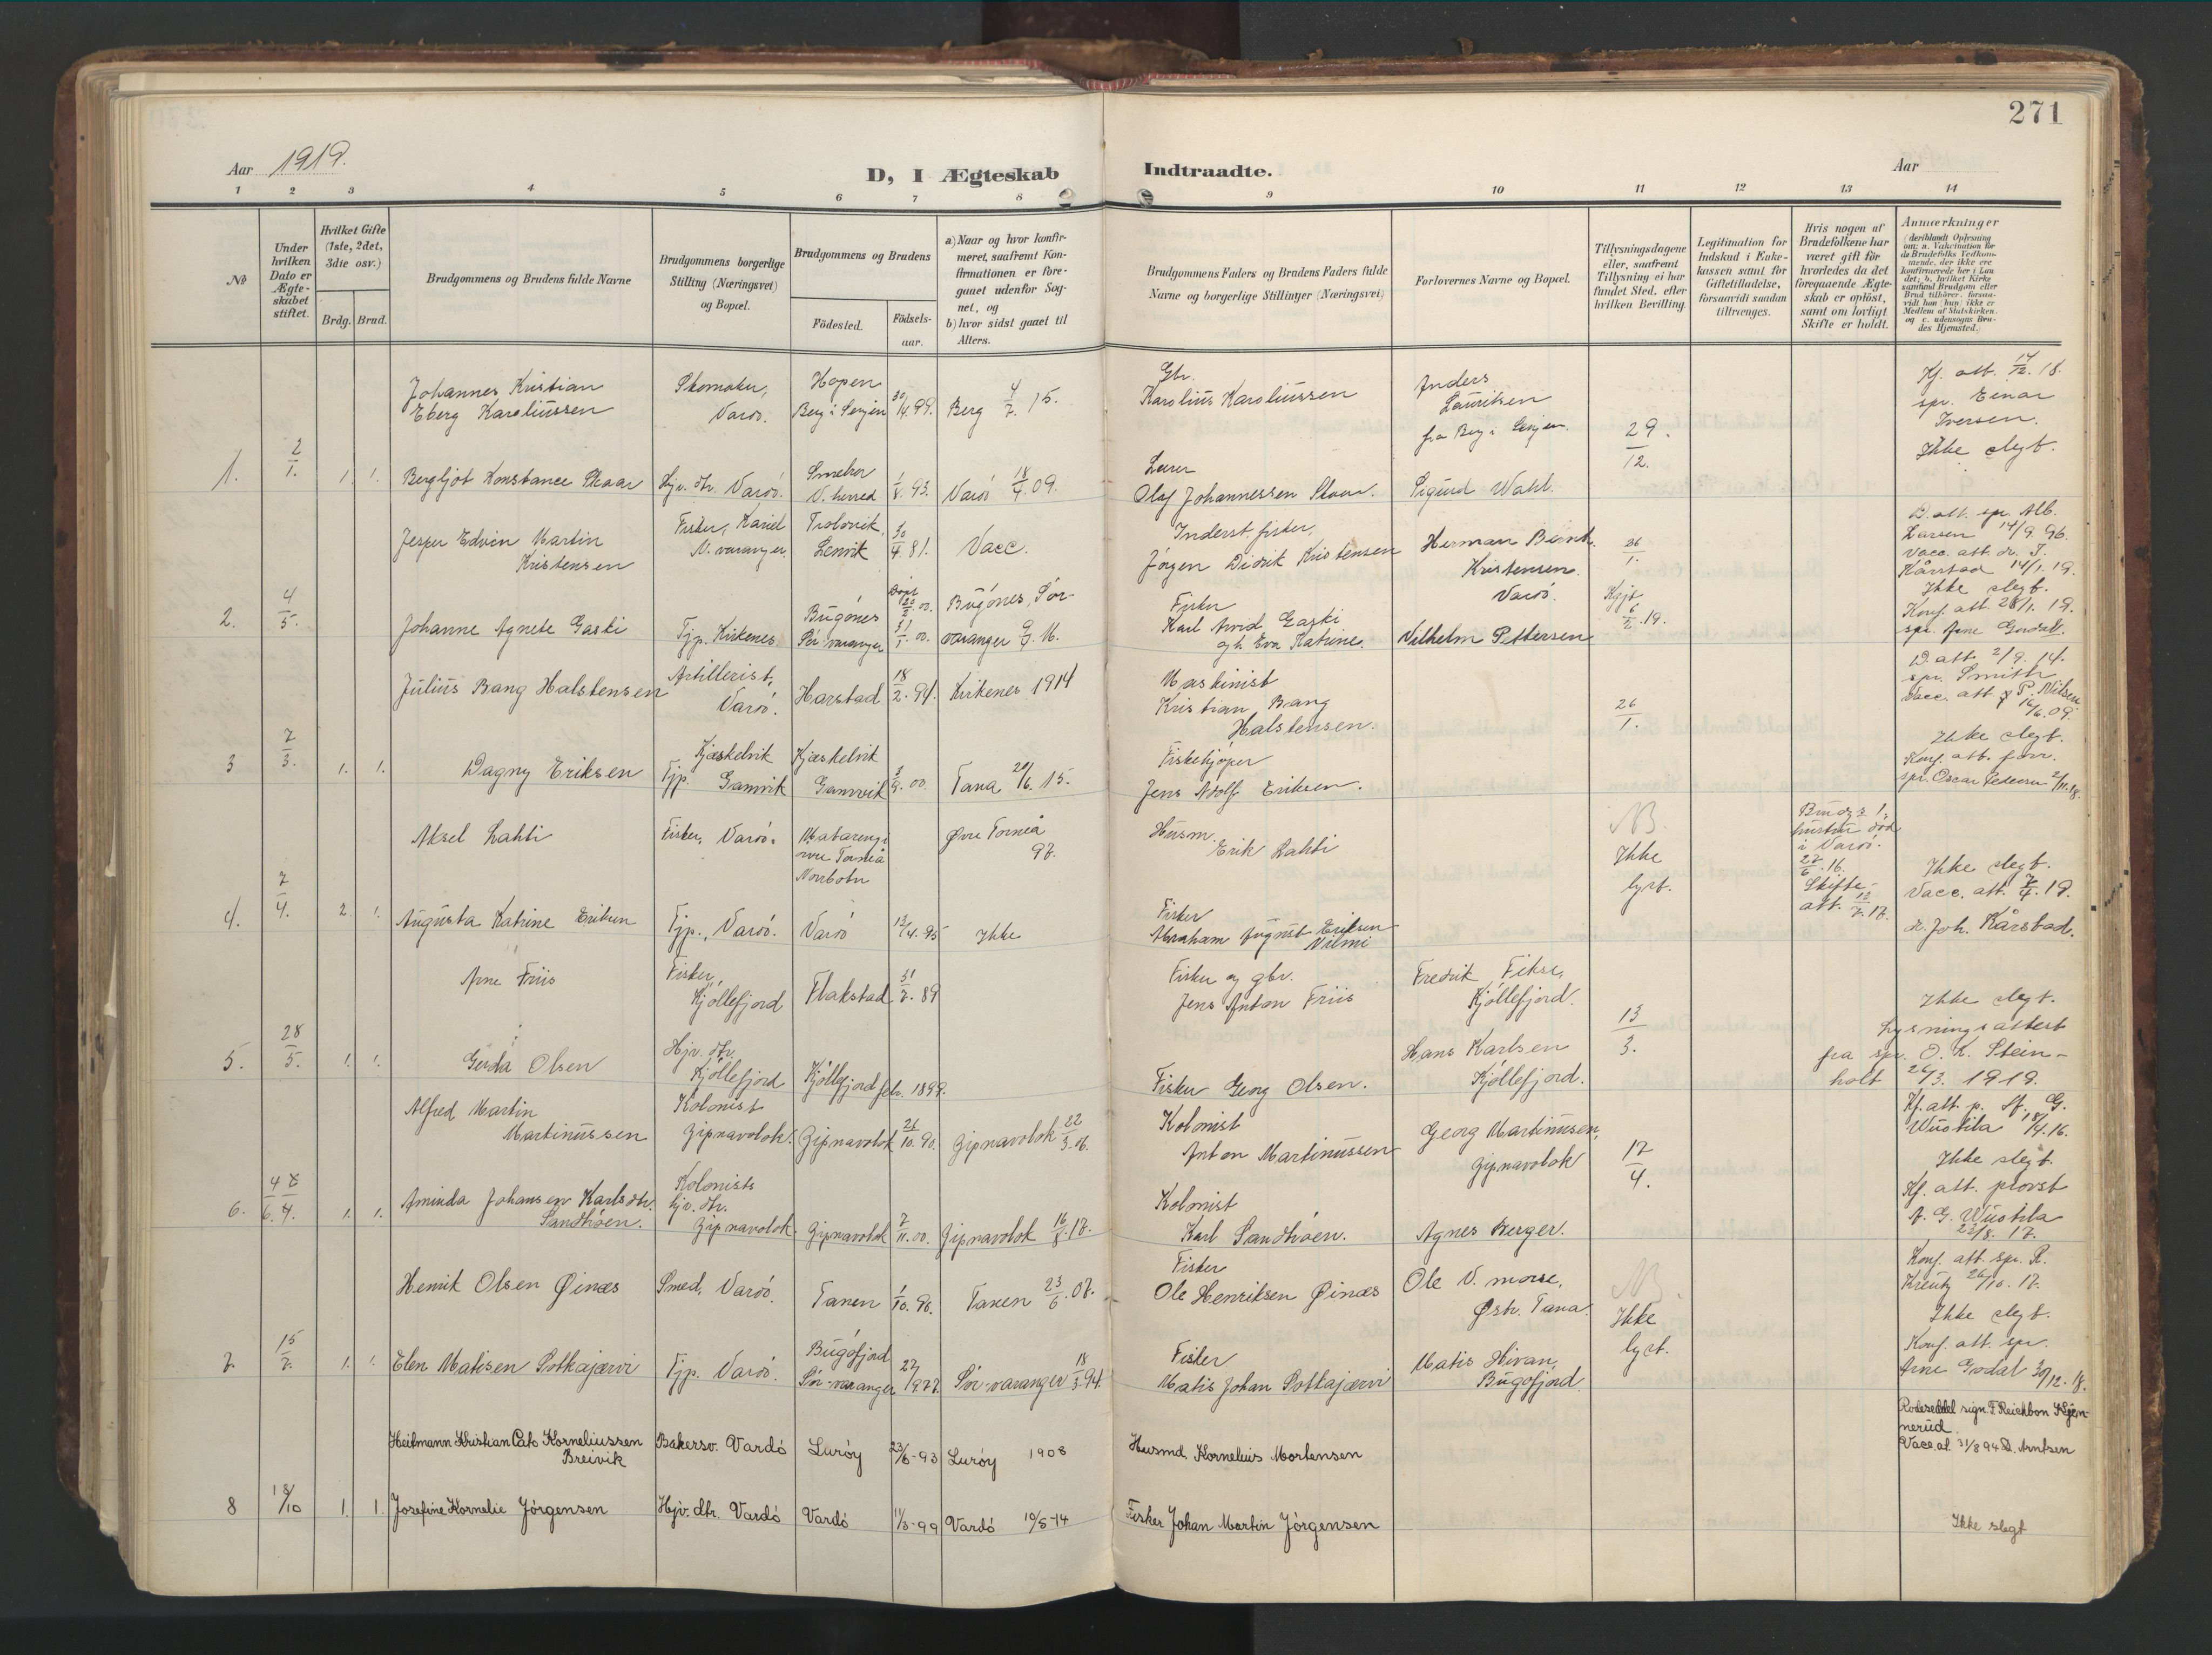 271
Aar 1919.
D, I Ægteskab Indtraadte.
Aar
1 2 3 4 5 6 7 8 9 10 11 12 13 14
No
Under
hvilken
Dato er
Ægte-
skabet
stiftet.
Hvilket Gifte
(1ste, 2det,
3die osv.)
Brdg. Brud.
Brudgommens og Brudens fulde Navne
Brudgommens borgerlige
Stilling (Næringsvei)
og Bopæl.
Brudgommens og Brudens
Födested.
Födsels-
aar.
a) Naar og hvor konfir-
meret, saafremt Kon-
firmationen er fore-
gaaet udenfor Sog-
net, og
b) hvor sidst gaaet til
Alters.
Brudgommens Faders og Brudens Faders fulde
Navne og borgerlige Stillinger (Næringsvei)
Forlovernes Navne og Bopæl.
Tillysningsdagene
eller, saafremt
Tillysning ei har
fundet Sted, efter
hvilken Bevilling.
Legitimation for
Indskud i Enke-
kassen samt for
Giftetilladelse,
forsaavidt saadan
tiltrænges.
Hvis nogen af
Brudefolkene har
været gift för
hvorledes da det
foregaaende Ægte-
skab er oplöst,
samt om lovligt
Skifte er holdt.
Anmærkninger
(deriblandt Oplysning
om: a. Vakcination for
de Brudefolks Vedkom-
mende, der ikke ere
konfirmerede her i Lan-
det; b. hvilket Kirke-
samfund Brudgom eller
Brud tilhörer, forsaa-
vidt han (hun) ikke er
Medlem af Statskirken,
og c. udensogns Bru-
des Hjemsted.)
1. 2/1. 1. 1.
Johannes Kristian
Eberg Karoliussen
Skomaker,
Vardö.
Hopen
Berg i Senjen
30/4.99.
Berg 4/7. 15.
Gbr.
Karolius Karoliussen
Anders
Lauritsen
fra Berg i Senjen.
29/12.
Kf. att. 17/12.18.
spr. Einar
Iversen.
Ikke slegt.
Bergljot Konstance Skaar
Hjv. dtr. Vardö.
V. herred
1/8.93.
Vardö 18/4.09.
Lærer
Olaf Johannessen Skaar.
Sigurd Wahl.
2. 4/5.
Jesper Edvin Martin
Kristensen
Fisker, Karied
N. varanger.
Lenvik
30/4.81.
Vacc.
Inderst, fisker,
Jörgen Didrik Kristensen
Herman Bernh.
Kristensen.
Vardö.
26/1.
D. att. spr. Alb.
Larsen 14/9.96.
Vacc. att. dr. J.
Kårstad 14/1.19.
Ikke slegt.
Johanne Agnete Gaski
Tjp. Kirkenes
Bugönes
Sör-varanger
31/1.00.
Bugönes, Sör-
varanger 9/7.16.
Fisker
Karl Arvid Gaski
og h. Eva Katrine.
Vilhelm Pettersen
6/2.19.
Konf. att. 28/1.19.
spr. Arne Godal.
3 7/3. 1. 1.
Julius Bang Halstensen
Artillerist,
Vardö.
Harstad
18/2.94.
Kirkenes 1914
Maskinist
Kristian Bang
Halstensen.
26/1.
D. att. 2/9.14.
spr. Smith
Vacc. att. P. Nilsen
16/6.09.
Ikke slegt.
Dagny Eriksen
Kjæskelvik
Tjp. Gamvik
Kjæskelvik
Gamvik
3/9.00.
Tana 20/6.15.
Fiskekjöper
Jens Adolf Eriksen.
Konf. att. forr.
spr. Oscar Pedersen 2/11.18.
4. 7/4. 2. 1.
Aksel Lahti
Fisker, Vardö.
Matarengi
övre Torneå
Norrbotn
Övre Torneå
97.
Husm.
Erik Lahti
NB.
Ikke
lyst.
Brudgs 1.
hustru död
i Vardö.
27/6.16.
Skifte-
att. 12/7.17.
Ikke slegt.
Vacc. att. 7/4.19.
dr. Joh. Kårstad.
Augusta Katrine Eriksen
Tjp., Vardö.
Vardö
13/4.95
Ikke
Fisker
Abraham August Eriksen
Niemi
5. 28/5. 1. 1.
Arne Friis
Fisker,
Kjöllefjord
Flakstad
31/7.89
Fisker og gbr.
Jens Anton Friis
Fredrik Fikse,
Kjöllefjord.
13/3.
Ikke slegt.
Lysningsattest
fra spr. O. K. Stein-
holt 26/3. 1919.
Gerda Olsen
Hjv. dtr.
Kjöllefjord
Kjöllefjord
febr. 1899.
Fisker Georg Olsen.
Hans Karlsen
Kjöllefjord.
6. 4/6. 7. 1. 1.
Alfred Martin
Martinussen
Kolonist
Zipnavolok.
Zipnavolok
26/10.90.
Zipnavolok 22/3.06.
Kolonist
Anton Martinussen
Georg Martinussen,
Zipnavolok
17/4.
Kf. att. p. A. G.
Wuotila 18/4.16.
Ikke slegt.
Aminda Johansen Karlsdtr.
Sandhöen.
Kolonists
hjv. dtr.
Zipnavolok.
Zipnavolok
7/11.00.
Zipnavolok 16/8.17.
Kolonist
Karl Sandhöen.
Agnes Berger.
Kf. att. provst
A. G. Wuotila
22/8.17.
7. 15/7. 1. 1.
Henrik Olsen Öinæs
Smed, Vardö.
Tanen
1/10.90.
Tanen 23/6.07.
Fisker
Ole Henriksen Öinæs
Ole V. morse,
Östr. Tana.
NB.
Ikke
lyst.
Konf. att. spr. R.
Kreutz 26/10.17.
Ikke slegt.
Elen Matisen Sotkajærvi
Tjp. Vardö.
Bugöfjord
Sör-varanger
Sör-varanger 18/3.94.
Fisker
Matis Johan Sotkajærvi
Matis Hivan,
Bugöfjord.
Konf. att. spr.
Arne Godal 30/12.18.
8 18/10 1. 1.
Heitmann Kristian Cato Korneliussen
Breivik
Bakersv. Vardö
Luröy
23/6-93
Luröy 1908
Husmd. Kornelius Mortensen
Rodeseddel sign. F. Reichbon Kjen-
nerud.
Vacc. at. 31/8 94 D. Arntsen
Josefine Kornelie Jörgensen
Hjv. dtr. Vardö
Vardö
11/3-99
Vardö 10/5-14
Fisker Johan Martin Jörgensen
Ikke slegt